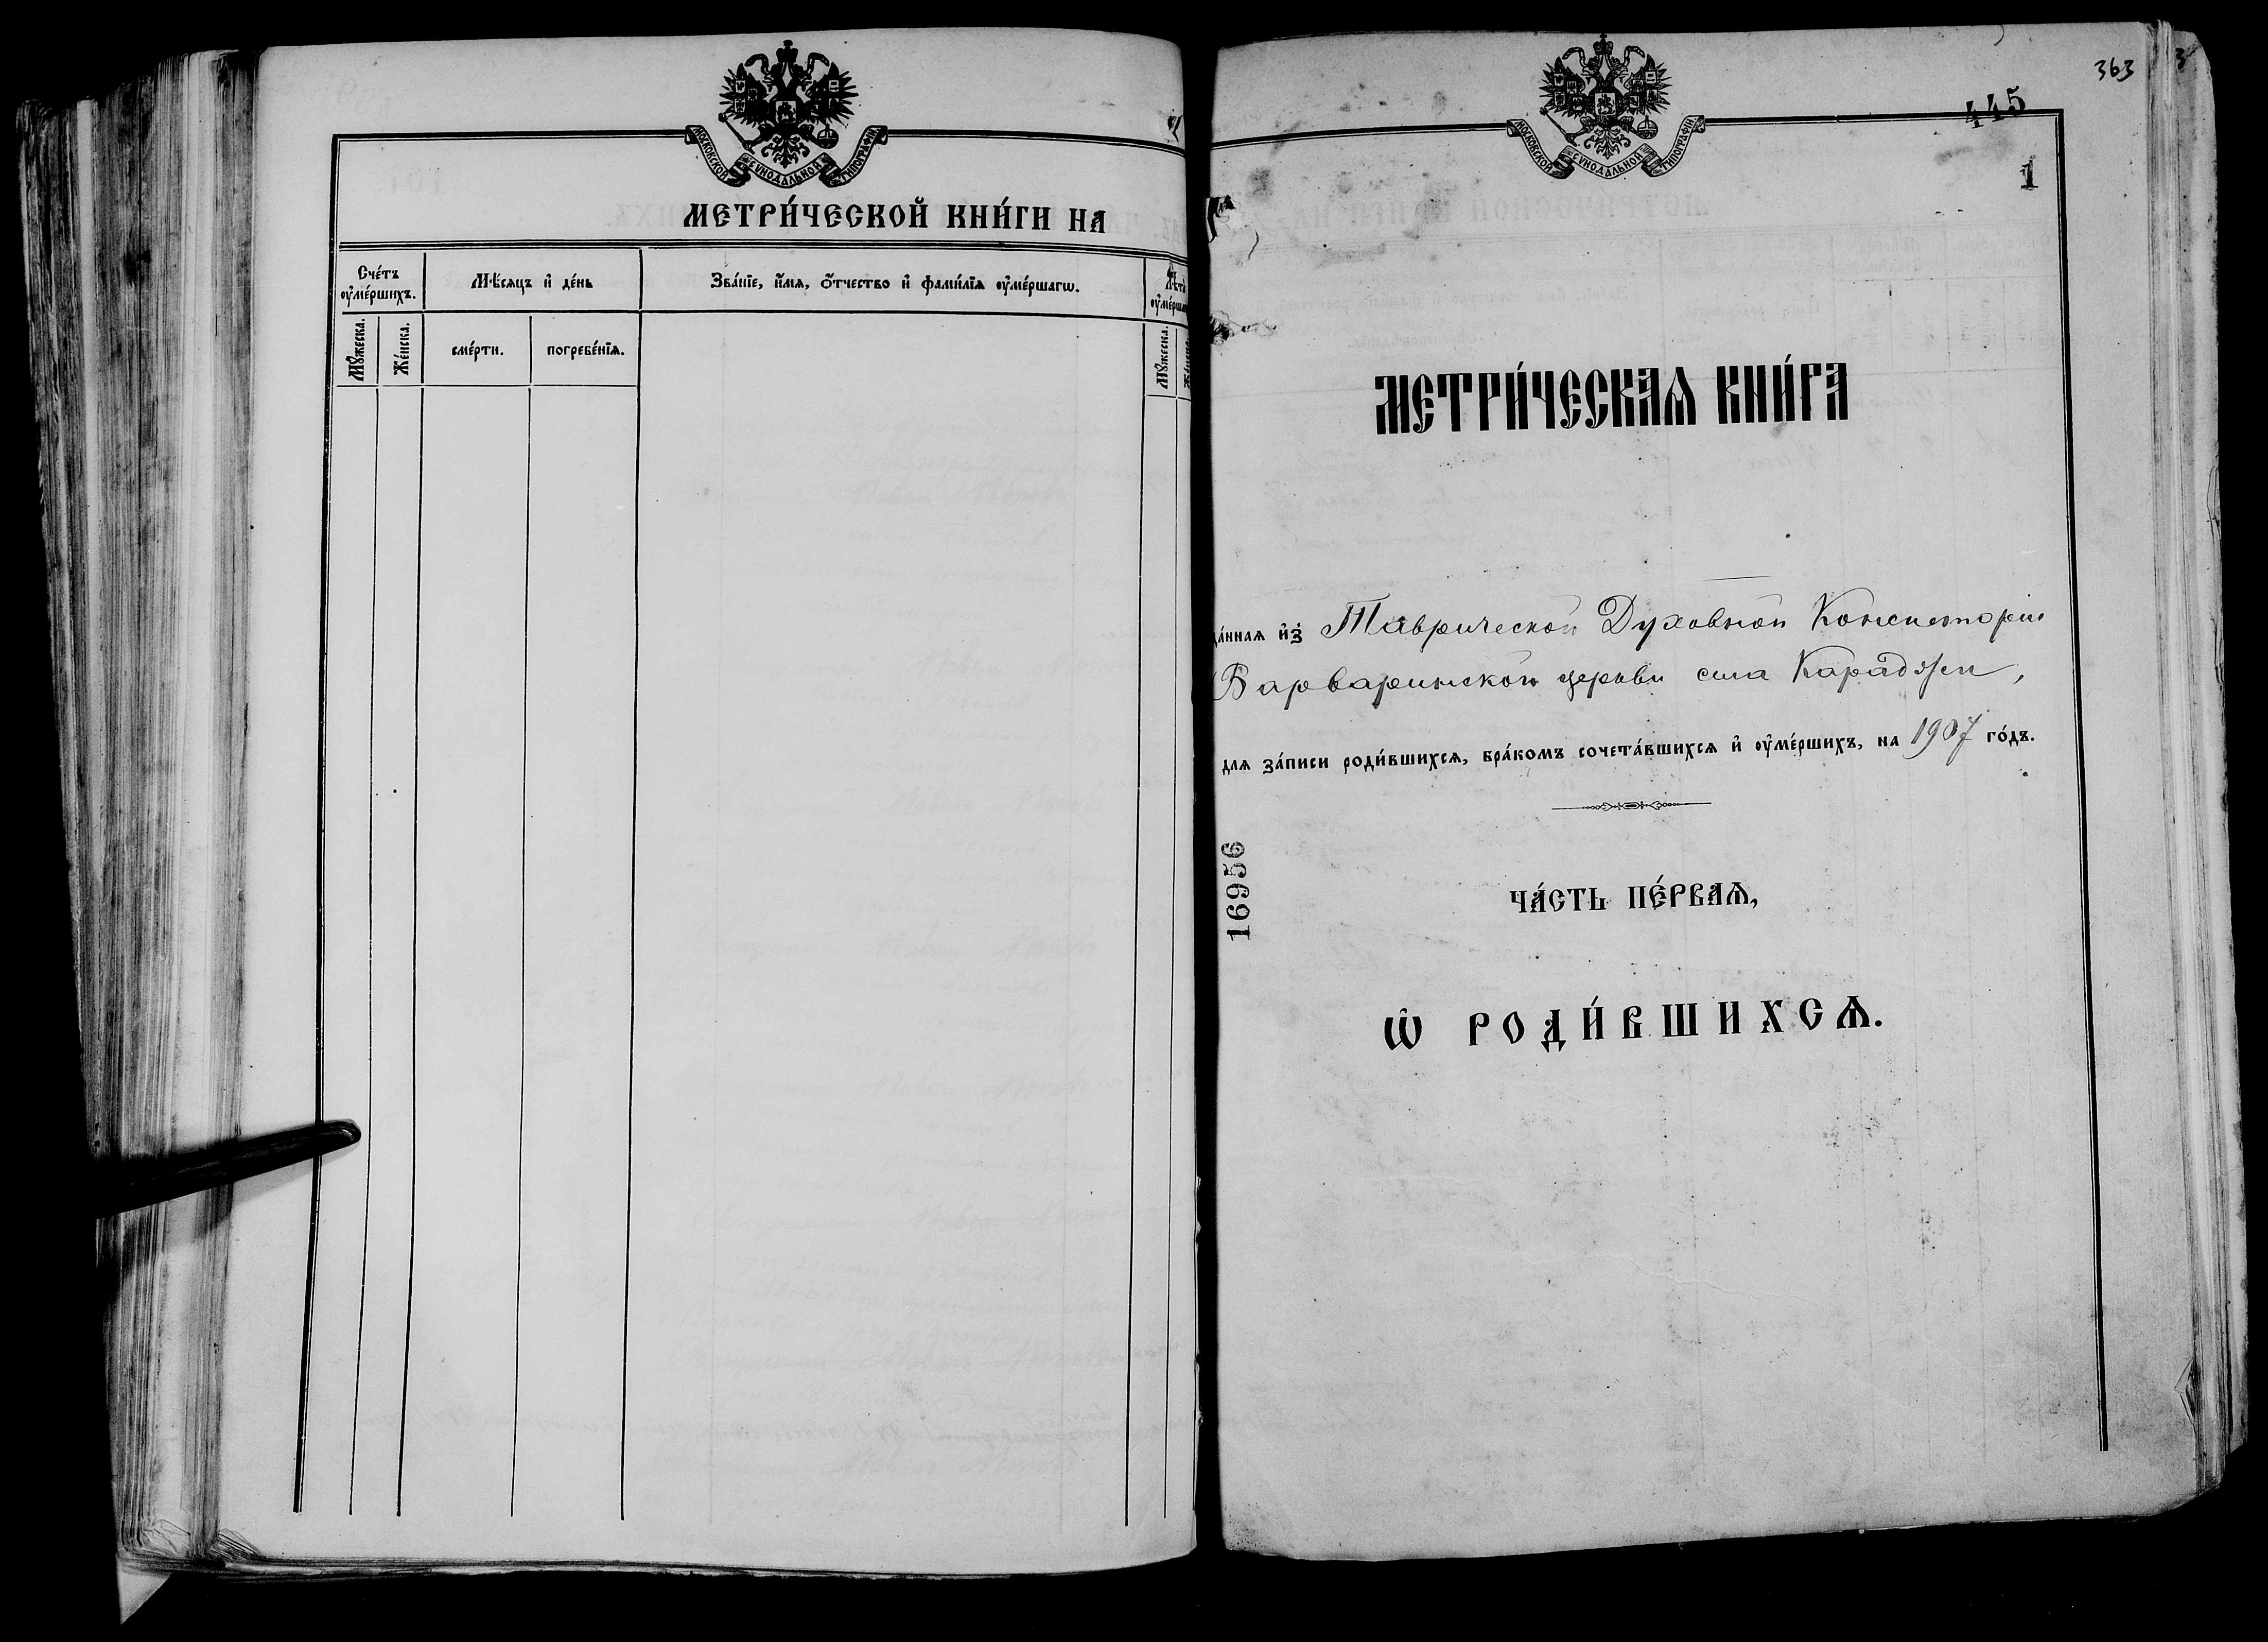 МОСКОВСКОЙ СѴНОДАЛЬНОЙ ТИПОГРАФІИ
МЕТРИ́ЧЕСКОЙ КНИ́ГИ НА
Сче́тъ ᲂу҆ме́ршихъ.
Мѣ́сяцъ и҆ де́нь
Зва́нїе, и҆́мѧ, ѻ҆́тчество и҆ фами́лїѧ ᲂу҆ме́ршагѡ.
Мꙋ́жеска.
Же́нска.
сме́рти.
погребе́нїѧ.
Мꙋ́жеска.
363
445
МОСКОВСКОЙ СѴНОДАЛЬНОЙ ТИПОГРАФІИ
1
МЕТРИ́ЧЕСКАѦ КНИ́ГА
да́ннаѧ и҆з̾ Таврической Духовной Консисторіи
Варваринской церкви села Караджи,
для за́писи роди́вшихсѧ, бра́комъ сочета́вшихсѧ и҆ ᲂу҆ме́ршихъ, на 1907 го́дъ.
16956
ЧА́СТЬ ПЕ́РВАѦ,
Ѡ҆ РОДИ́ВШИХСѦ.